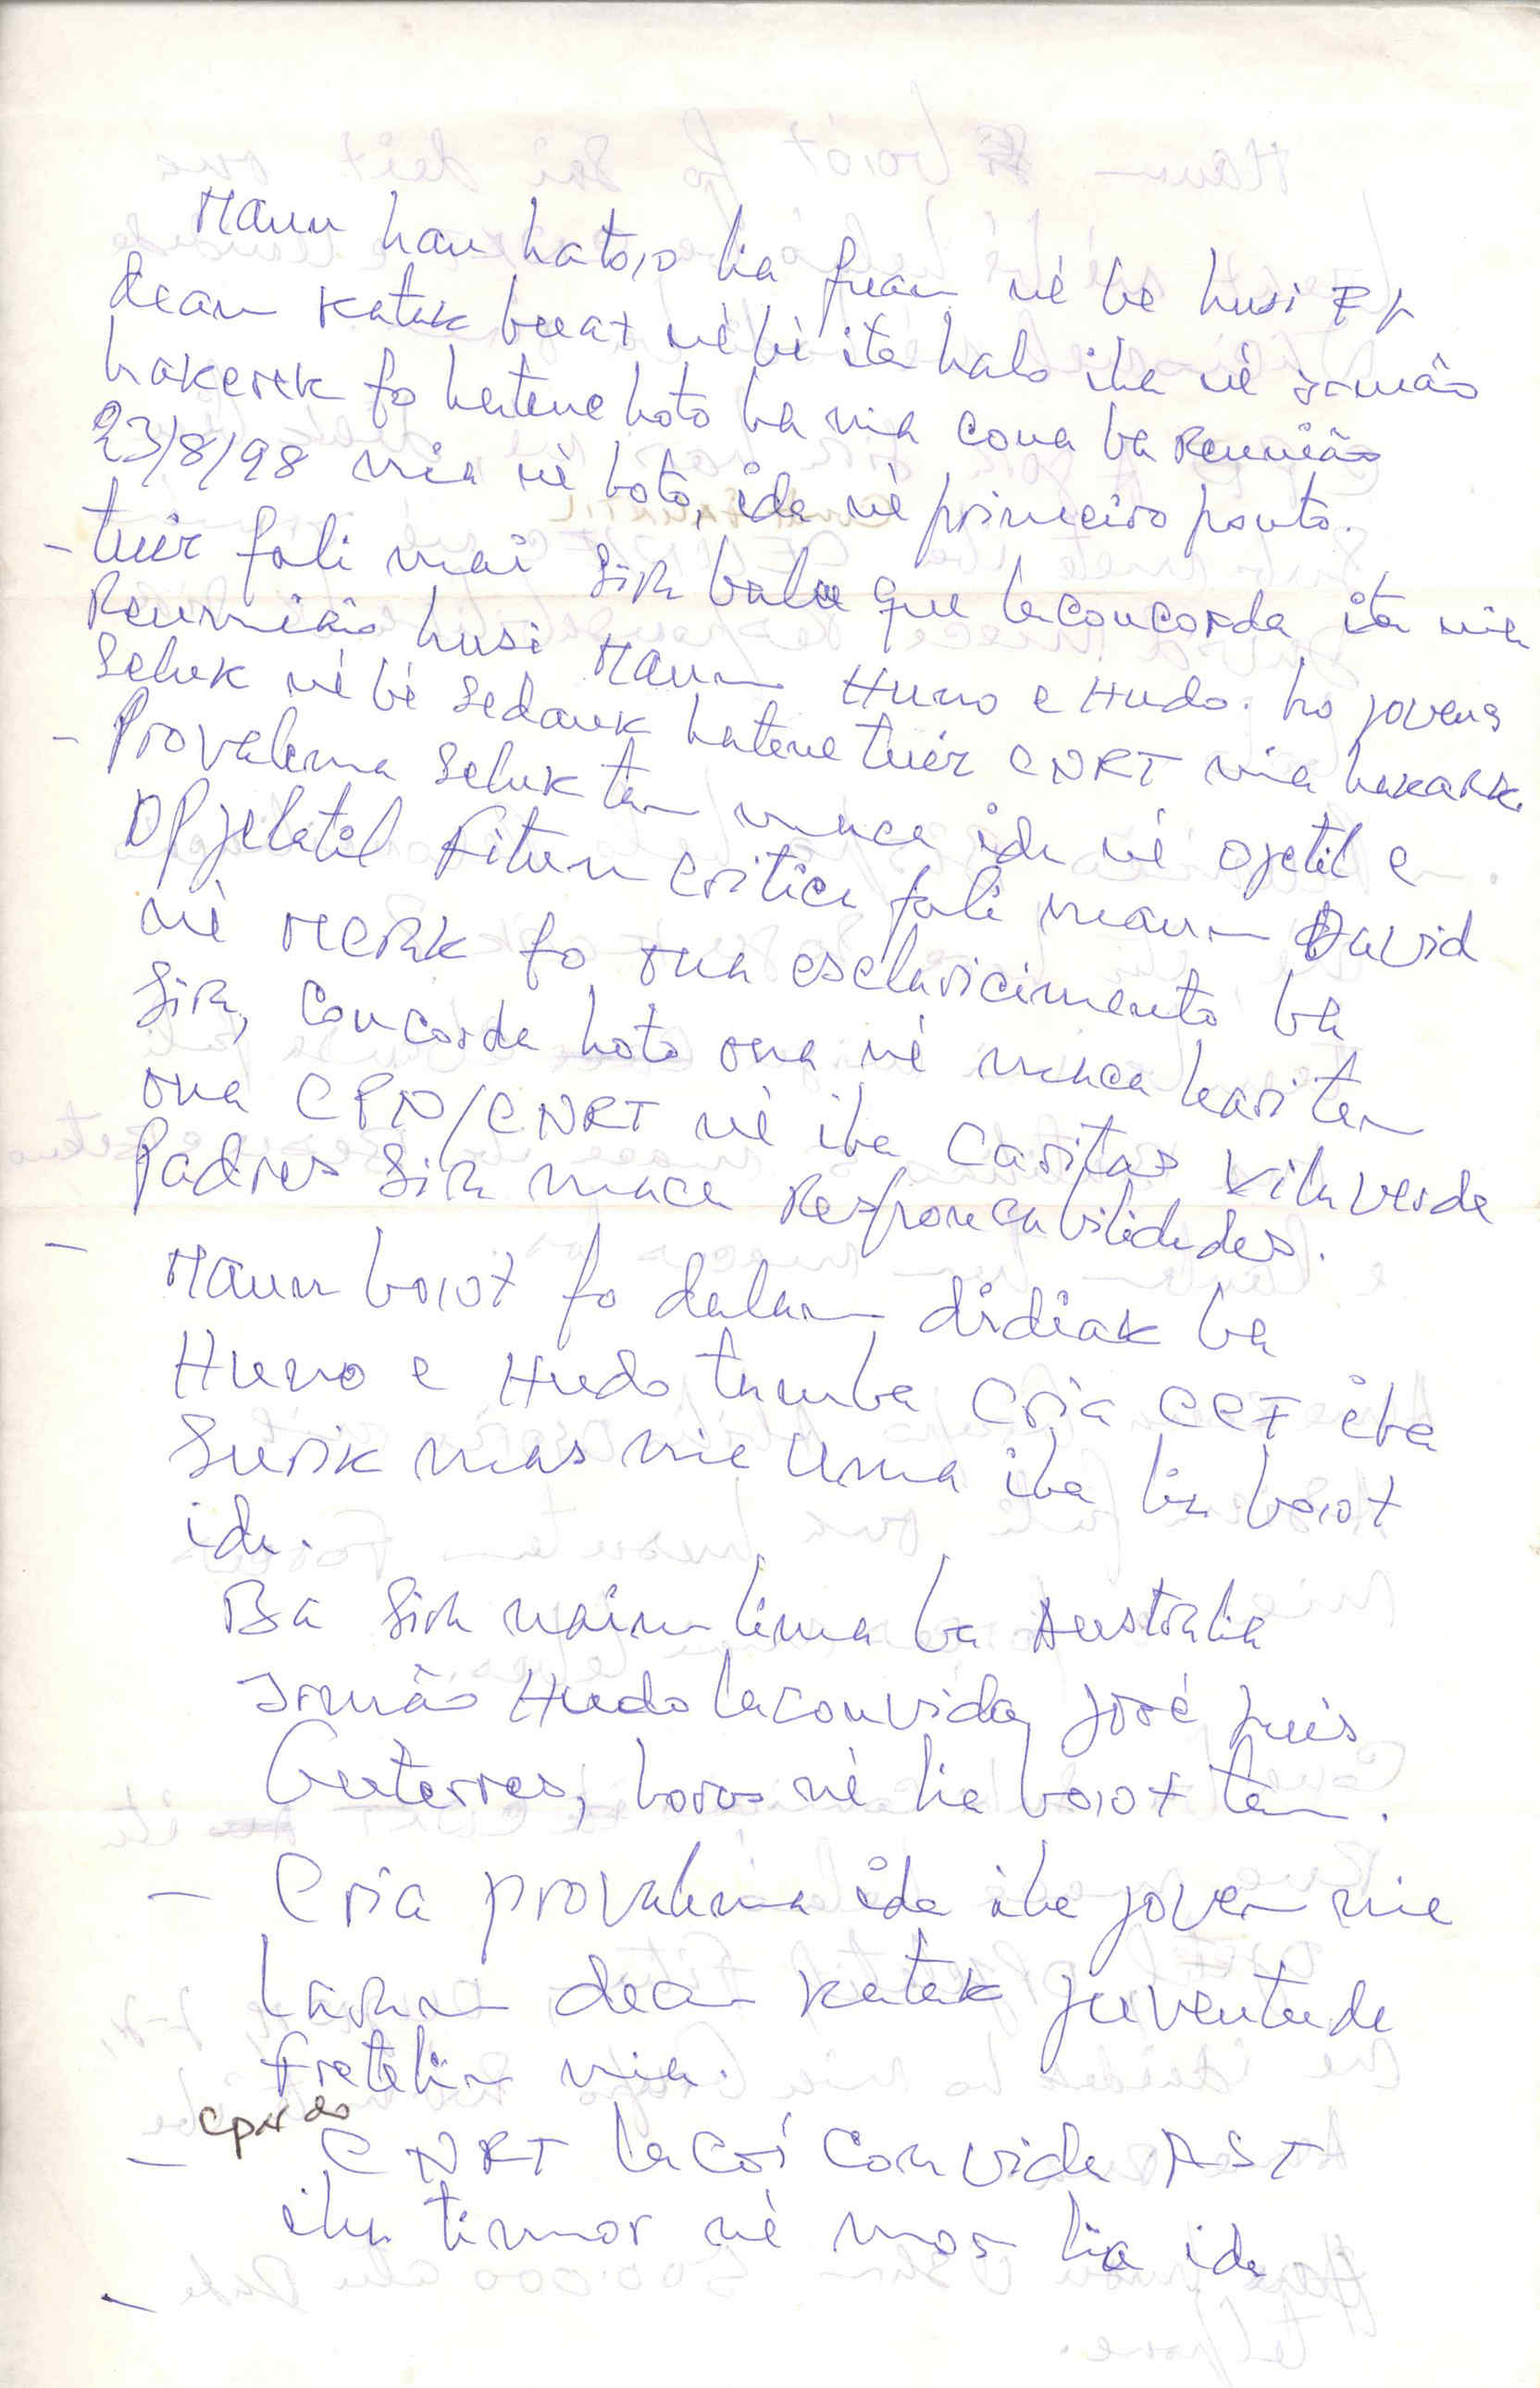 Maun hau hato,o lia fuan né be husi
dean katak buat né bé ita halo iha né irmão
hakerek fo hatene hoto ba nia cona ba Reunião
23/8/98 nia né hoto, ida né primeiro ponto.
- tuir fali mai sira balu que laconcorda ita nia
Reunião husi Maun Huno e Hudo. ho jovens
seluk né bé sedauk hatene tuir CNRT nia hakarak.
- Provalema seluk tan maca ida né ojetil e
Opjelatil Fitun critica fali maun David
né MERAK fo ona esclaricimento ba
sira, concorda hoto ona né maca hari tan
ona CPN/CNRT né iha Caritas Vila verde
Padres sira maca Responcabilidades.
- Maun boiot fo dalan didiak ba
Huno e Hudo tamba cria CCF iha
surik mas nia Uma iha lia boiot
ida.
Ba sira nain lima ba Australia
Irmão Hudo laconvida José Luis
Guterres, horas né lia boiot tan.
- Cria provalema ida iha joven nia
laran dean katak juventude
Fretelin nia.
- CPN do CNRT lacoi convida AST
iha timor né mos lia ida
-